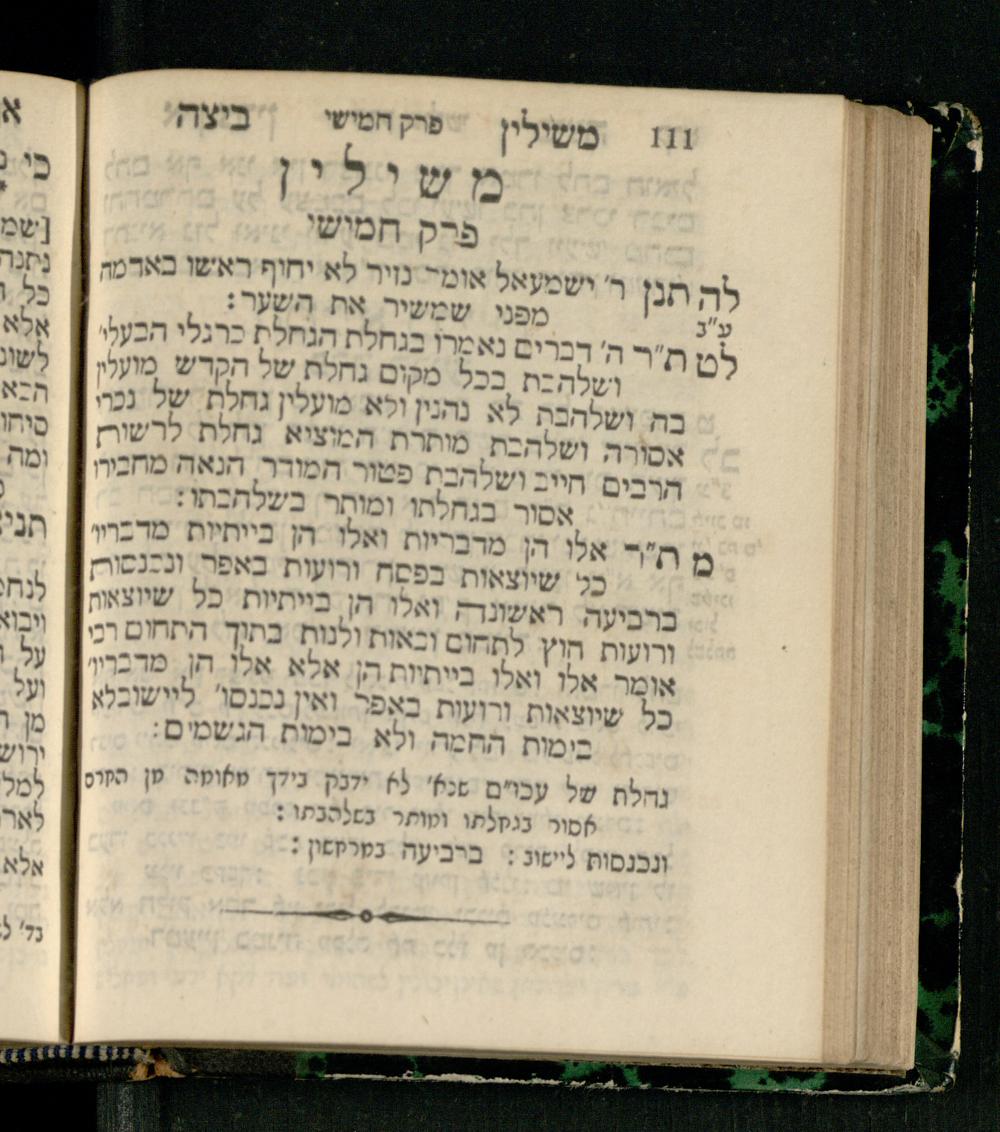 111 משילין פרק חמישי ביצה
משילין
פרק חמישי
לה תנן ר׳ ישמעאל אומר נזיר לא יחוף ראשו באדמה
ע״ב מפני שמשיר את השער:
לט ת״ר ה׳ דברים נאמרו בגחלת הגחלת כרגלי הבעלי׳
ושלהבת בכל מקום גחלת של הקדש מועלין
בה ושלהבת לא נהנין ולא מועלין גחלת של נכרי
אסורה ושלהבת מותרת המוציא גחלת לרשות
הרבים חייב ושלהבת פטור המודר הנאה מחבירו
אסור בגחלתו ומותר בשלהבתו:
מ ת״ר אלו הן מדבריות ואלו הן בייתיות מדבריו׳
כל שיוצאות בפסח ורועות באפר ונכנסות
ברביעה ראשונה ואלו הן בייתיות כל שיוצאות
ורועות חוץ לתחום ובאות ולנות בתוך התחום רבי
אומר אלו ואלו בייתיות הן אלא אלו הן מדבריו׳
כל שיוצאות ורועות באפר ואין נכנסו׳ ליישוב לא
בימות החמה ולא בימות הגשמים:
גחלת של עכו״ם שנא׳ לא ידבק בידך מאומה מן החרם
אסור בגחלתו ומותר בשלהבתו:
ונכנסות ליישוב: ברביעה במרחשון: